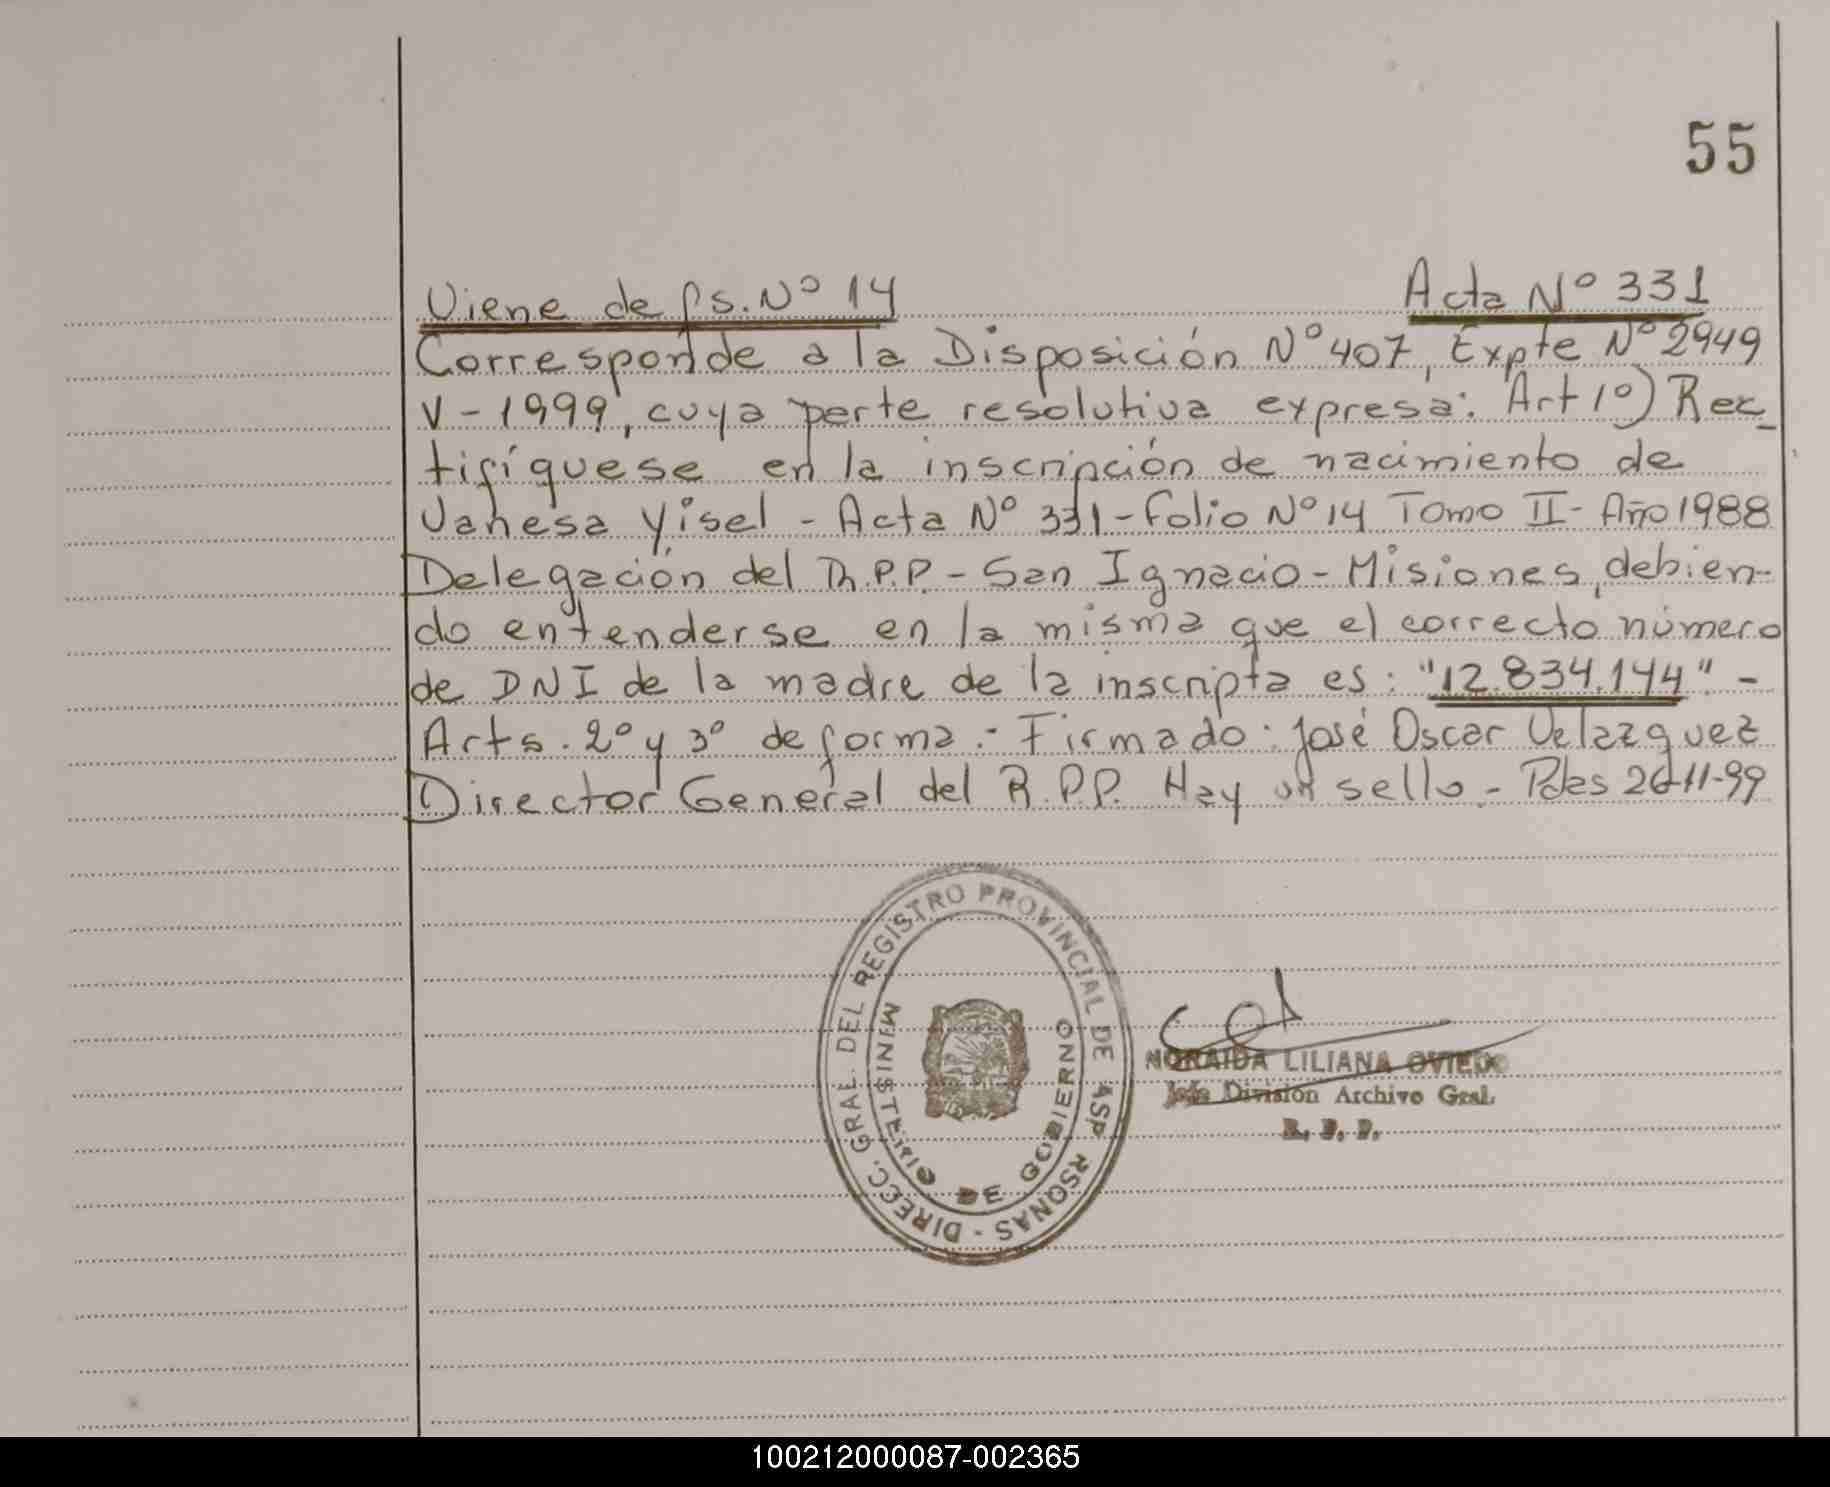 55
Viene de fs. Nº 14
Acta Nº 331
Corresponde a la Disposición Nº 407, Expte Nº 2949
V - 1999, cuya parte resolutiva expresa: Art 1º) Rec_
tifíquese en la inscripción de nacimiento de
Vanesa Yisel - Acta Nº 331 - Folio Nº 14 Tomo II - Año 1988
Delegación del R.P.P - San Ignacio - Misiones, debien-
do entenderse en la misma que el correcto número
de DNI de la madre de la inscripta es: "12.834.144" -
Arts. 2º y 3º de forma.- Firmado: José Oscar Velazquez
Director General del R.P.P. Hay un sello. - Pdas 26-11-99
DIRECC. GRAL. DEL REGISTRO PROVINCIAL DE ASP RSONAS -
MINISTERIO DE GOBIERNO
NORAIDA LILIANA OVIEDO
Jefa División Archivo Gral.
R. P. P.
100212000087-002365